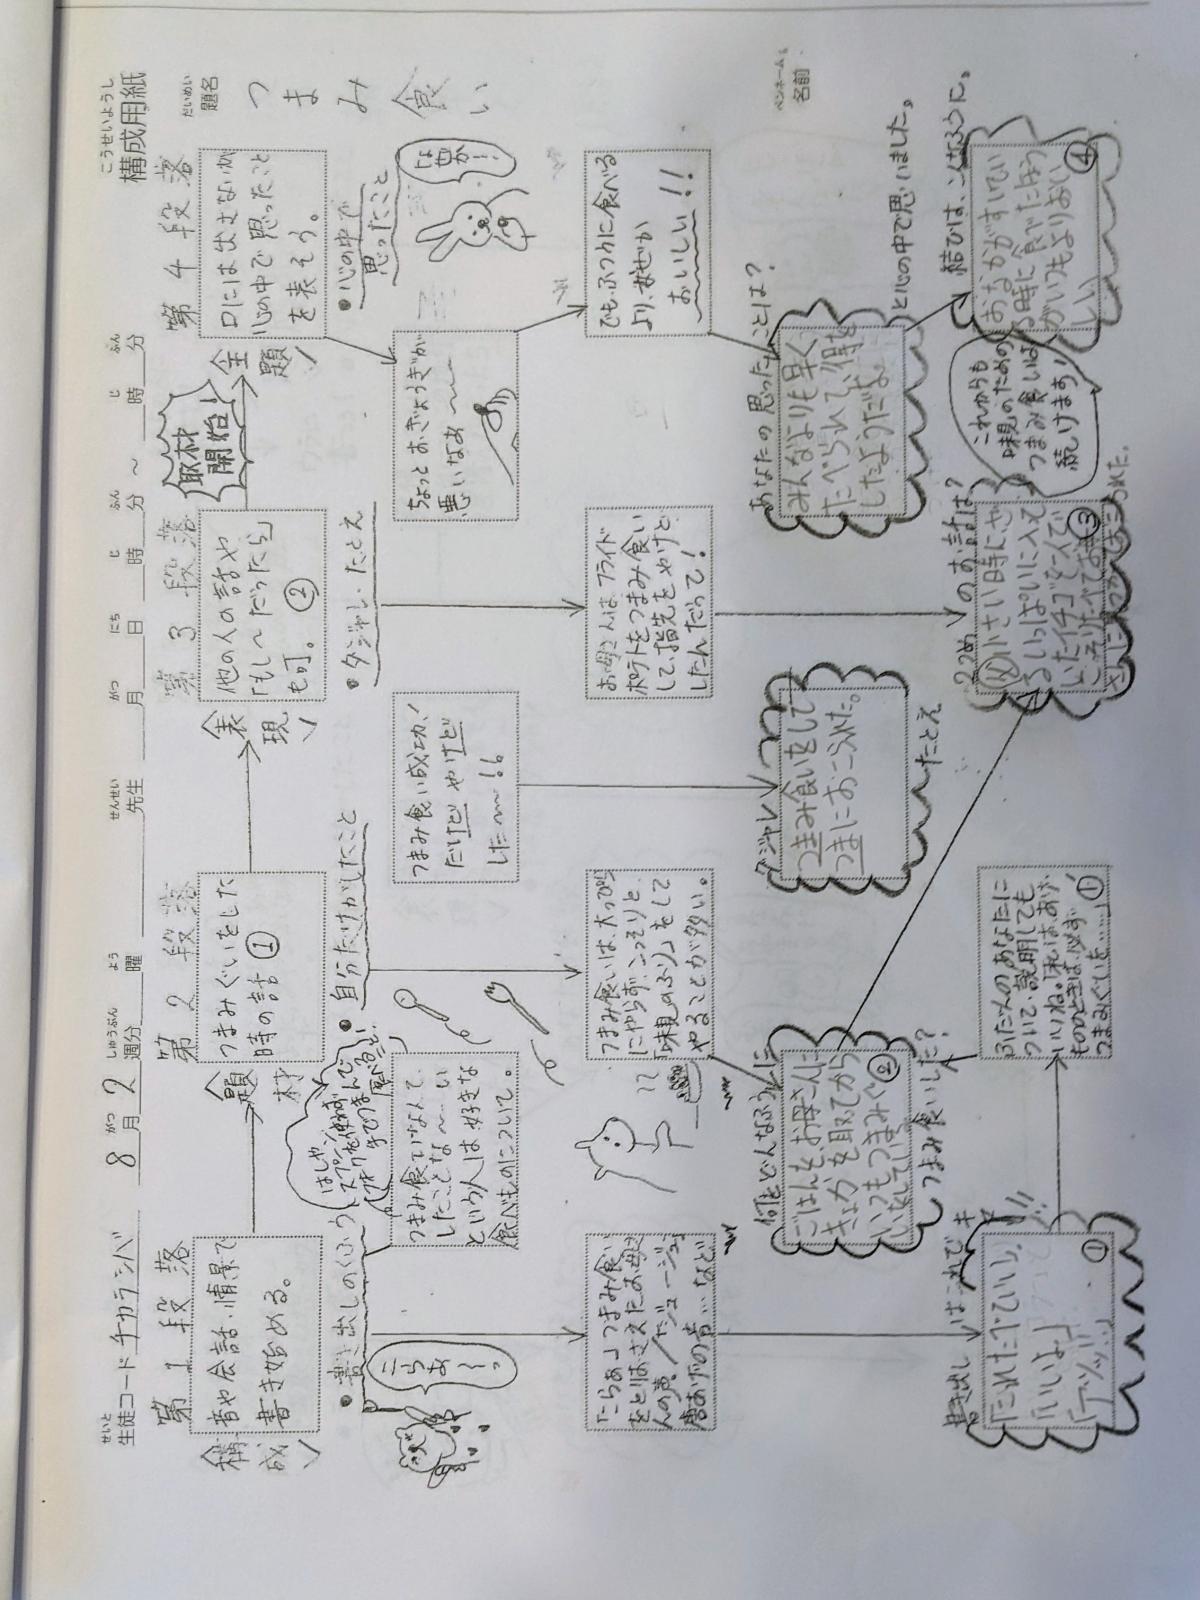 こうせいようし
構成用紙
だいめい
題名
つまみ食い
ペンネーム
名前
せいと
生徒コード チカラシバ 8月2週分 曜 先生 月 日 時 分 ～ 時 分
第1段落
構成
音や会話・情景で
書き始める。
第2段落
題材
つまみぐいをした
時の話①
第3段落
表現
他の人の話や
「もし～だったら」
も可。②
取材
開始！
第4段落
主題
口には出さないが
心の中で思ったこと
を表そう。
・書き出しのくふう
こらぁ～っ
はしや
スプーン、
フォークを使わず
手でつまんで
食べること
つまみ食いなんて、
したことな～い
という人は好きな
食べものについて。
・自分だけがしたこと
つまみ食い成功、
だけどやけど
した～!!
・ダジャレ・たとえ
ちょっとおぎょうぎが
悪いなぁ～～
・心の中で
思ったこと
「こらぁ」つまみ食い
をとりおさえたお母
さんの声／ジュージュー
唐あげの音…など
つまみ食いは大っぴら
にやらず、こっそりと、
「味見のふり」をして
やることが多い。
お母さんは、フライド
ポテトをつまみ食い
して、指先をやけど
したんだって！
でも、ふつうに食べる
より、なぜか
おいしい!!
何をどんなふうに
ごはんを、お母さんに
きょかを取ってから
いつもつまみぐ
いをしています②
つまみ食いした？
ダジャレ
つまみ食いをして
つまにおこられた。
たとえ
あなたの思ったことは？
みんなよりも早く
たべられて、得を
したようだよ。
と心の中で思いました。
書き出しはこれでキマリ!!
「たれた下ていい。」
「いいよ」
「アツッ」①
ふだんのあなたに
ついて、説明しても
いいね。「私は、あげ
もののときは、必ず
つまみぐいを……」①
2つめのお話は？
小さい時に
③
これからも
味見のための
つまみ食いは
続けます！
結びは、こんなふうに。
おなかがすいてい
る時に食べたほう
がいつもよりおい
しい④